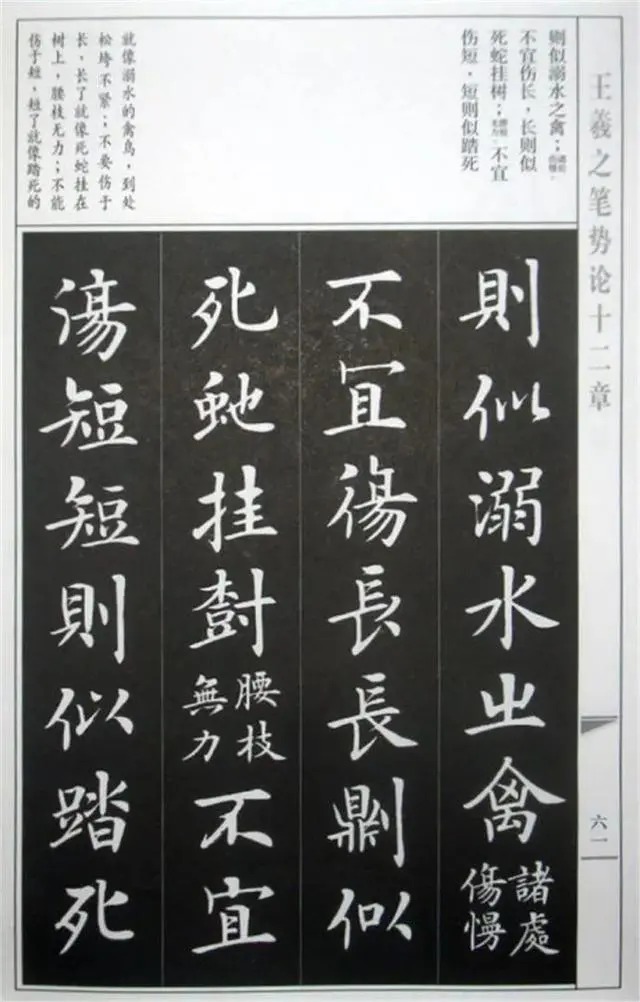 王羲之笔势论十二章
六一
则似溺水之禽；诸处伤慢。
不宜伤长，长则似
死蛇挂树；腰枝无力。不宜
伤短，短则似踏死
就像溺水的禽鸟，到处
松垮不紧；不要伤于
长，长了就像死蛇挂在
树上，腰枝无力；不能
伤于短，短了就像踏死的
則似溺水㞢禽諸處傷慢
不宜傷長長則似
死虵挂樹腰枝無力不宜
傷短短則似踏死